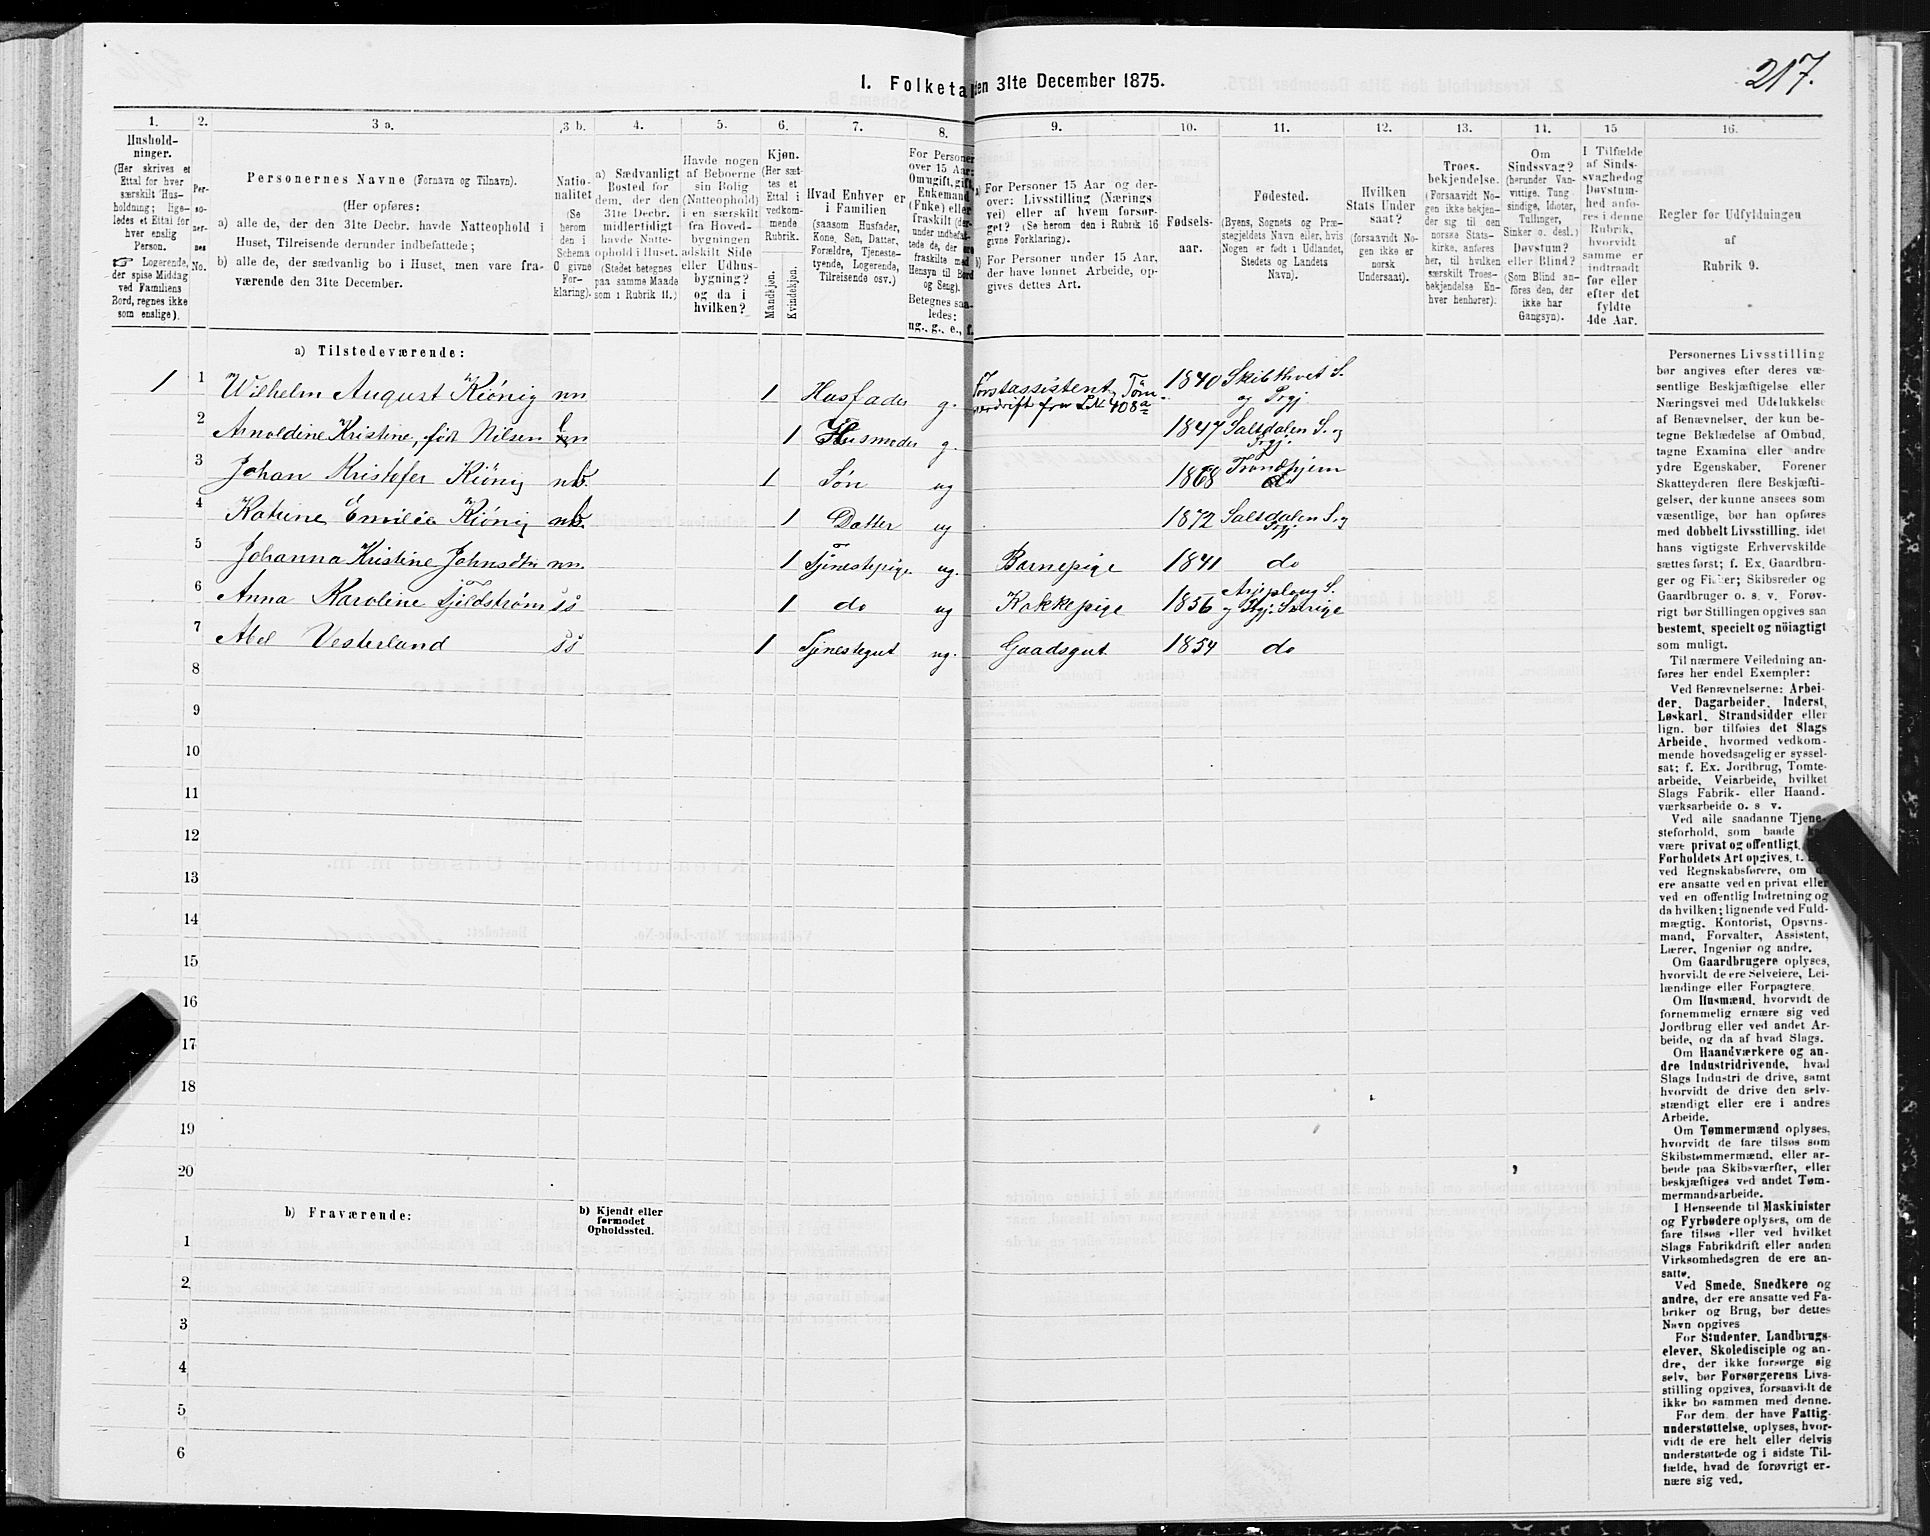 217.
I. Folketal den 31te December 1875.
1.
Hushold-
ninger.
(Her skrives et
Ettal for hver
særskilt Hus-
holdning; lige-
ledes et Ettal for
hver enslig
Person.
☞ Logerende,
der spise Middag
ved Familiens
Bord, regnes ikke
som enslige).
2.
Per-
so-
ner-
nes
No.
3 a.
Personernes Navne (Fornavn og Tilnavn).
(Her opføres:
a) alle de, der den 31te Decbr. havde Natteophold i
Huset, Tilreisende derunder indbefattede;
b) alle de, der sædvanlig bo i Huset, men vare fra-
værende den 31te December.
3 b.
Natio-
nalitet
(Se
herom
den i
Schema
C givne
For-
klaring).
4.
a) Sædvanligt
Bosted for
dem, der den
31te Decbr.
midlertidigt
havde Natte-
ophold i Huset.
(Stedet betegnes
paa samme Maade
som i Rubrik 11.)
5.
Havde nogen
af Beboerne
sin Bolig
(Natteophold)
i en særskilt
fra Hoved-
bygningen
adskilt Side
eller Udhus-
bygning?
og da i
hvilken?
6.
Kjøn.
(Her sæt-
tes et
Ettal i
vedkom-
mende
Rubrik.
Mandkjøn.
Kvindekjøn.
7.
Hvad Enhver er
i Familien
(saasom Husfader,
Kone, Søn, Datter,
Forældre, Tjeneste-
tyende, Logerende,
Tilreisende osv.)
8.
For Personer
over 15 Aar:
Om ugift, gift,
Enkemand
(Enke) eller
fraskilt (der-
under indbefat-
tede de, der ere
fraskilte med
Hensyn til Bord
og Seng).
Betegnes saa-
ledes:
ug., g., e., f.
9.
a) For Personer 15 Aar og der-
over: Livsstilling (Nærings
vei) eller af hvem forsør-
get? (Se herom den i Rubrik 16
givne Forklaring).
b) For Personer under 15 Aar,
der have lønnet Arbeide, op-
gives dettes Art.
10.
Fødsels-
aar.
11.
Fødested.
(Byens, Sognets og Præ-
stegjeldets Navn eller, hvis
Nogen er født i Udlandet,
Stedets og Landets
Navn).
12.
Hvilken
Stats Under
saat?
(forsaavidt No-
gen ikke er
norsk
Undersaat).
13.
Troes-
bekjendelse.
(Forsaavidt No-
gen ikke bekjen-
der sig til den
norske Stats-
kirke, anføres
her, til hvilken
særskilt Troes-
bekjendelse En-
hver henhører).
14.
Om
Sindssvag?
(herunder Van-
vittige, Tung
sindige, Idioter,
Tullinger,
Sinker o. desl.)
Døvstum?
eller Blind?
(Som Blind an-
føres den, der
ikke har
Gangsyn).
15
I Tilfælde
af Sinds-
svaghed og
Døvstum-
hed anfø-
res i denne
Rubrik,
hvorvidt
samme er
indtraadt
før eller
efter det
fyldte
4de Aar.
16.
Regler for Udfyldningen
af
Rubrik 9.
a) Tilstedeværende:
1 1 Wilhelm August Kiönig nn 1 Husfader g. Forstassistent, 1840 Skibthvet S.
og Prgj.
2 Arnoldine Kristine, født Nilsen 1 Husmoder g. 1847 Saltdalen S. og
Prgj.
3 Johan Kristofer Kiönig 1 Søn ug 1868 Trondhjem
4 Katrine Emilie Kiönig 1 Datter ug 1872 Saltdalen S. og
Prgj
5 Johanna Kristine Johnsdtr nn. 1 Tjenestepige ug. Barnepige 1841 do
6 Anna Karoline Fjeldstrøm ss 1 do ug Kokkepige 1856 Arjeploug S.
og Prgj. Sverige
7 Abel Vesterland ss 1 Tjenestegut ug. Gaadsgut 1854 do
8
9
10
11
12
13
14
15
16
17
18
19
20
b) Fraværende:
b) Kjendt eller
formodet
Opholdssted.
1
2
3
4
5
6
Personernes Livsstilling
bør angives efter deres væ-
sentlige Beskjæftigelse eller
Næringsvei med Udelukkelse
af Benævnelser, der kun be-
tegne Beklædelse af Ombud,
tagne Examina eller andre
ydre Egenskaber. Forener
Skatteyderen flere Beskjæfti-
gelser, der kunne ansees som
væsentlige, bør han opføres
med dobbelt Livsstilling, idet
hans vigtigste Erhvervskilde
sættes først; f. Ex. Gaardbru-
ger og Fisker; Skibsreder og
Gaardbruger o. s. v. Forøv-
rigt bør Stillingen opgives saa
bestemt, specielt og nöiagtigt
som muligt.
Til nærmere Veiledning an-
føres her endel Exempler:
Ved Benævnelserne: Arbei-
der, Dagarbeider, Inderst,
Løskarl, Strandsidder eller
lign. bør tilføies det Slags
Arbeide, hvormed vedkom-
mende hovedsagelig er syssel-
sat; f. Ex. Jordbrug, Tomte-
arbeide, Veiarbeide, hvilket
Slags Fabrik- eller Haand-
værksarbeide o. s v.
Ved alle saadanne Tjene-
steforhold, som baade
være privat og offentligt,
Forholdets Art opgives,
ved Regnskabsførere, om
ere ansatte ved en privat eller
ved en offentlig Indretning og
da hvilken; lignende ved Fuld-
mægtig, Kontorist, Opsyns-
mand, Forvalter, Assistent,
Lærer, Ingeniør og andre.
Om Gaardbrugere oplyses,
hvorvidt de ere Selveiere, Lei-
lændinge eller Forpagtere.
Om Husmænd, hvorvidt de
fornemmelig ernære sig ved
Jordbrug eller ved andet Ar-
beide, og da af hvad Slags.
Om Haandværkere og an-
dre Industridrivende, hvad
Slags Industri de drive, samt
hvorvidt de drive den selv-
stændigt eller ere i andres
Arbeide.
Om Tømmermænd oplyses,
hvorvidt de fare tilsøs som
Skibstømmermænd, eller ar-
beide paa Skibsværfter, eller
beskjæftiges ved andet Tøm-
mermandsarbeide.
I Henseende til Maskinister
og Fyrbødere oplyses, om de
fare tilsøs eller ved hvilket
Slags Fabrikdrift eller anden
Virksomhedsgren de ere an-
satte.
Ved Smede, Snedkere og
andre, der ere ansatte ved Fa-
briker og Brug, bør dettes
Navn opgives
For Studenter, Landbrugs-
elever, Skoledisciple og an-
dre, der ikke forsørge sig
selv, bør Forsørgerens Livs-
stilling opgives, forsaavidt de
ikke bo sammen med denne.
For dem, der have Fattig-
understøttelse, oplyses, hvor-
vidt de ere helt eller delvis
understøttede og i sidste Til-
fælde, hvad de forøvrigt er-
nære sig ved.